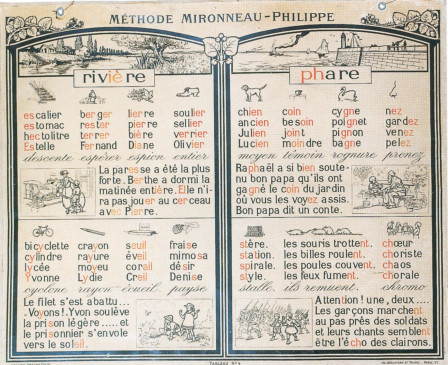 MÉTHODE MIRONNEAU-PHILIPPE
rivière
escalier berger lierre soulier
estomac rester pierre sellier
hectolitre terrer bière verrier
Estelle Fernand Diane Olivier
descente espérer espion entier
La paresse a été la plus
forte. Berthe a dormi la
matinée entière. Elle n'i-
ra pas jouer au cerceau
avec Pierre.
bicyclette crayon seuil fraise
cylindre rayure éveil mimosa
lycée moyeu corail désir
Yvonne Lydie Creil Denise
cyclone rayon écueil payse
Le filet s'est abattu...
Voyons! Yvon soulève
la prison légère ..... et
prisonnier s'envole
vers le soleil.
phare
chien coin cygne nez
ancien besoin poignet gardez
Julien joint pignon venez
Lucien moindre bagne pelez
moyen témoin rognure prenez
Raphaël a si bien soute-
nu bon papa qu'ils ont
gagné le coin du jardin
où vous les voyez assis.
Bon papa dit un conte.
stère. les souris trottent. chœur
station. les billes roulent. choriste
spirale. les poules couvent. chaos
style. les feux fument. chorale
stalle. ils remuent. chromo
Attention! une, deux....
Les garçons marchent
au pas près des soldats
et leurs chants semblent
être l'écho des clairons.